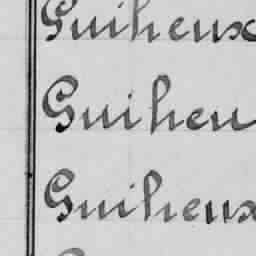 Guiheux
Guiheu
Guiheux